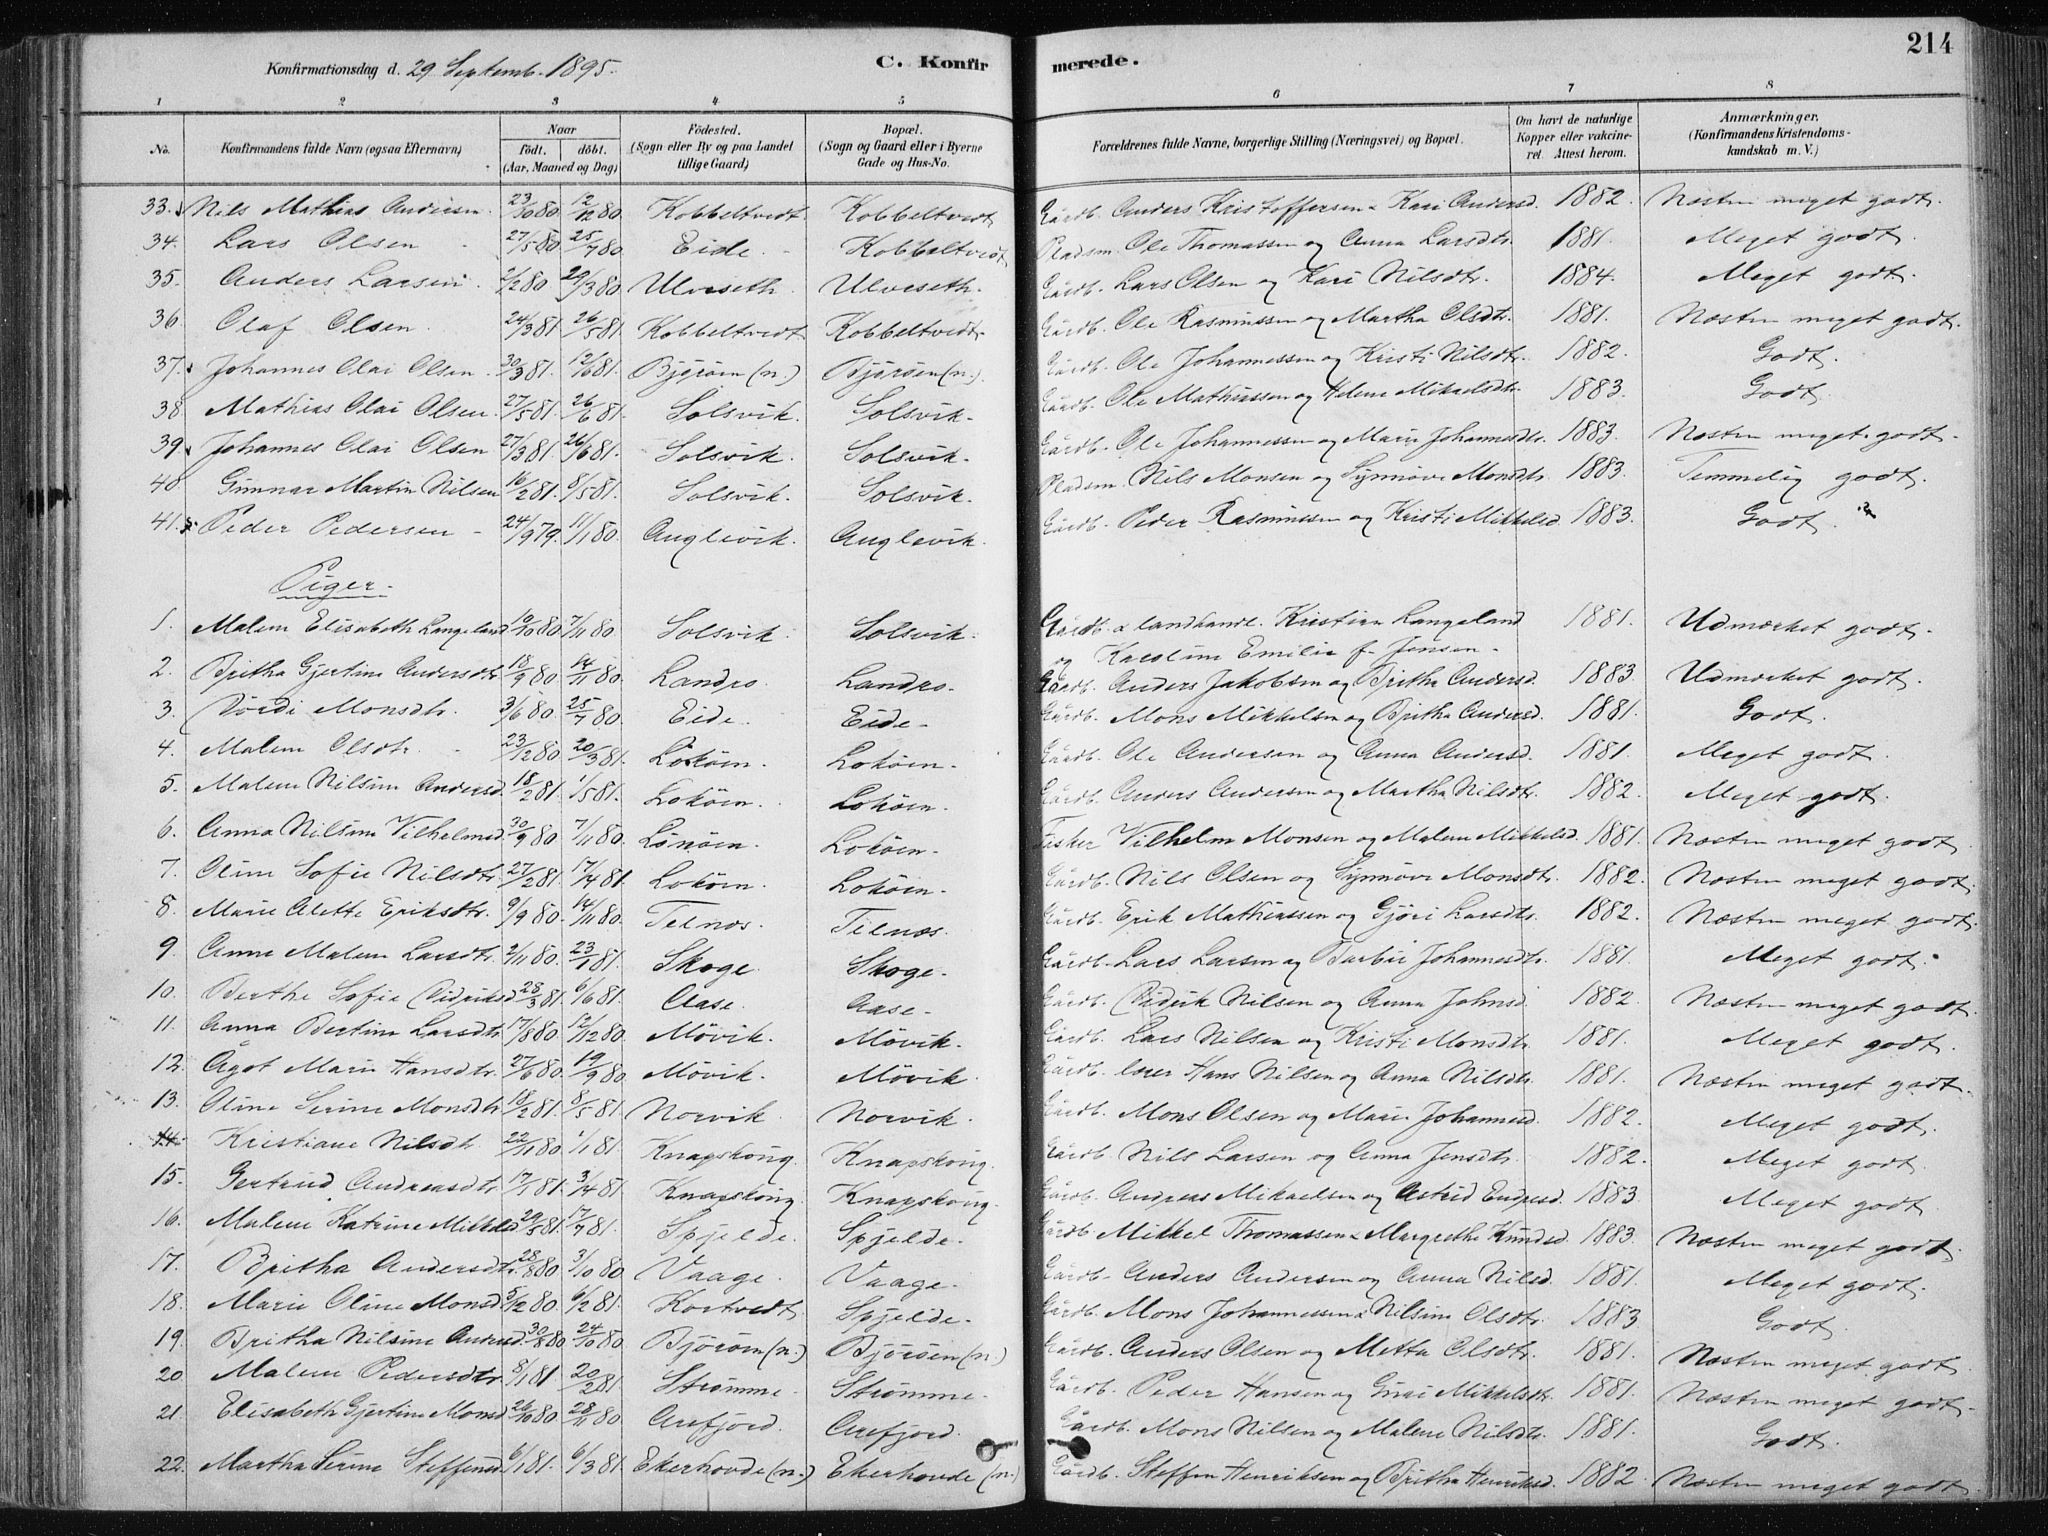 Konfirmationsdag d. 29 Septemb. 1895. C. Konfir merede. 214
1 2 3 4 5 6 7 8
No. Konfirmandens fulde Navn (ogsaa Efternavn) Naar født. døbt. (Aar, Maaned og Dag) Fødested. (Sogn eller By og paa Landet tillige Gaard) Bopæl. (Sogn og Gaard eller i Byerne Gade og Hus-No. Forældrenes fulde Navne, borgerlige Stilling (Næringsvei) og Bopæl. Om havt de naturlige Kopper eller vakcineret. Attest herom. Anmærkninger. (Konfirmandens Kristendomskundskab m. V.)
33. Nils Mathias Andersen. 23/10 80. 12/12 80. Kobbeltvedt. Kobbeltvedt Gårdb. Anders Kristoffersen & Kari Andersd. 1882. Næsten meget godt.
34. Lars Olsen 27/5 80. 25/7 80. Eide. Kobbeltvedt Pladsm. Ole Thomassen og Anna Larsdtr. 1881. Meget godt.
35. Anders Larsen 2/2 80 29/3 80 Ulveseth. Ulveseth. Gårdb. Lars Olsen og Kari Nilsdtr. 1884. Meget godt.
36. Olaf Olsen. 24/3 81. 26/5 81. Kobbeltvedt Kobbeltvedt. Gårdb. Ole Rasmussen og Martha Olsdtr. 1881. Næsten meget godt.
37. Johannes Olai Olsen. 30/3 81. 12/6 81. Bjørøen (n.) Bjørøen (n.). Gårdb. Ole Johannessen og Kristi Nilsdtr. 1882. Godt.
38. Mathias Olai Olsen. 27/5 81. 26/6 81. Solsvik. Solsvik. Gårdb. Ole Mathiassen og Helene Mikaelsdtr. 1883. Godt.
39. Johannes Olai Olsen 27/3 81. 26/6 81. Solsvik. Solsvik. Gårdb. Ole Johannessen og Marie Johannesdtr. 1883. Næsten meget godt.
40. Gunnar Martin Nilsen 16/2 81. 8/5 81. Solsvik. Solsvik. Pladsm. Nils Monsen og Synnøve Monsdtr. 1883. Temmelig godt.
41. Peder Pedersen 24/9 79. 11/1 80. Anglevik. Anglevik. Gårdb. Peder Rasmussen og Kristi Mikkelsd. 1883. Godt.
Piger.
1. Malene Elisabeth Langeland 10/10 80. 7/11 80 Solsvik. Solsvik. Gårdb. & landhandl. Kristian Langeland 1881. Udmærket godt.
og Karoline Emilie f. Jensen.
2. Britha Gjertine Andersdtr. 18/9 80 14/11 80. Landro. Landro. Gårdb. Anders Jakobsen og Britha Andersd. 1883. Udmærket godt.
3. Vørdi Monsdtr. 3/6 80. 25/7 80. Eide. Eide. Gårdb. Mons Mikkelsen og Britha Andersd. 1881. Godt.
4. Malene Olsdtr. 23/12 80. 20/3 81. Lokøen. Lokøen. Gårdb. Ole Andersen og Anna Andersd. 1881. Meget godt.
5. Malene Nilsine Andersd. 18/2 81. 1/5 81. Lokøen. Lokøen. Gårdb. Anders Andersen og Martha Nilsdtr. 1882. Meget godt.
6. Anna Nilsine Vilhelmsd. 30/9 80. 7/11 80. Lønøen. Lokøen. Fisker Vilhelm Monsen og Malene Mikkelsd. 1881. Næsten meget godt.
7. Oline Sofie Nilsdtr. 27/2 81. 17/4 81. Lokøen. Lokøen. Gårdb. Nils Olsen og Synnøve Monsdtr. 1882. Næsten meget godt.
8. Marie Alette Eriksdtr. 9/9 80. 14/11 80. Telnæs. Telnæs. Gårdb. Erik Mathiassen og Gjøri Larsdtr. 1882. Næsten meget godt.
9. Anne Malene Larsdtr. 2/11 80. 23/1 81. Skoge. Skoge. Gårdb. Lars Larsen og Barbie Johannesdtr. 1881. Meget godt.
10. Berthe Sofie Didriksd. 28/3 81. 6/6 81. Aase. Aase. Gårdb. Didrik Nilsen og Anna Johnsd. 1882. Næsten meget godt.
11. Anna Bertine Larsdtr. 17/8 80. 12/12 80. Møvik. Møvik. Gårdb. Lars Nilsen og Kristi Monsdtr. 1881. Meget godt.
12. Ågot Marie Hansdtr. 27/6 80. 19/9 80. Møvik. Møvik. Gårdb. lærer Hans Nilsen og Anna Nilsdtr. 1881. Næsten meget godt.
13. Oline Serine Monsdtr. 18/2 81. 8/5 81. Norvik. Norvik. Gårdb. Mons Olsen og Marie Johannesd. 1882. Meget godt.
14. Kristiane Nilsdtr. 22/11 80. 1/1 81. Knapskoug. Knapskoug. Gårdb. Nils Larsen og Anna Jensdtr. 1882. Meget godt.
15. Gertrud Andreasdtr. 17/1 81. 3/4 81. Knapskoug. Knapskoug. Gårdb. Andreas Mikaelsen og Astrid Endresd. 1883. Meget godt.
16. Malene Katrine Mikkelsd. 29/5 81. 17/7 81. Spjelde. Spjelde. Gårdb. Mikkel Thomassen & Margrethe Knudsd. 1883. Næsten meget godt.
17. Britha Andersdtr. 28/8 80. 3/10 80. Vaage. Vaage. Gårdb. Anders Andersen og Anna Nilsd. 1881. Meget godt.
18. Marie Oline Monsd. 5/12 80. 6/2 81. Kortvedt. Spjelde. Gårdb. Mons Johannessen & Nilsine Olsdtr. 1883 Godt.
19. Britha Nilsine Andersd. 30/8 80. 24/10 80. Bjørøen (n.) Bjørøen (n.) Gårdb. Anders Olsen og Metta Olsdtr. 1881. Næsten meget godt.
20. Malene Pedersdtr. 8/1 81 20/2 81 Strømme. Strømme. Gårdb. Peder Hansen og Guri Mikkelsdtr. 1881. Næsten meget godt.
21. Elisabeth Gjertine Monsd. 26/10 80. 28/11 80. Arefjord. Arefjord. Gårdb. Mons Nilsen og Malene Nilsdtr. 1881. Godt.
22. Martha Serine Steffensd. 6/1 81. 6/3 81. Ekerhovde (n.) Ekerhovde (n.) Gårdb. Steffen Henriksen og Britha Henriksd. 1882. Næsten meget godt.